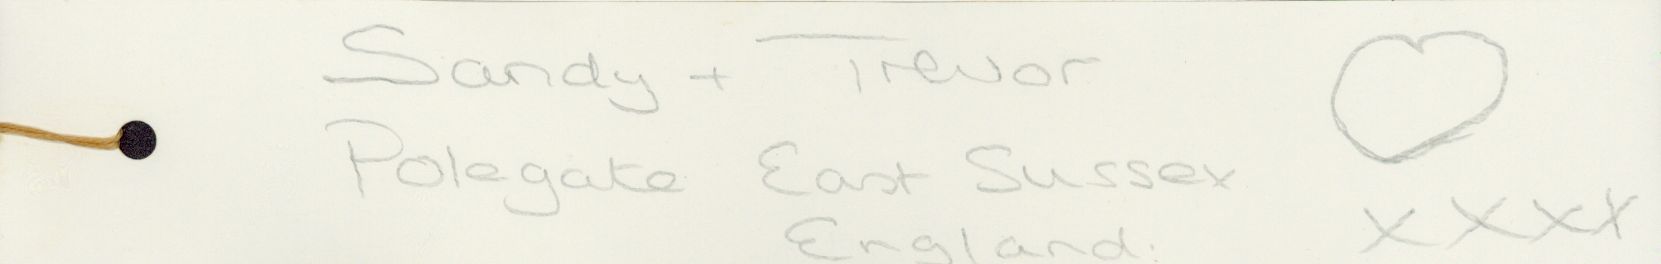 Sandy + Trevor
Polegate East Sussex
England.
xxxx